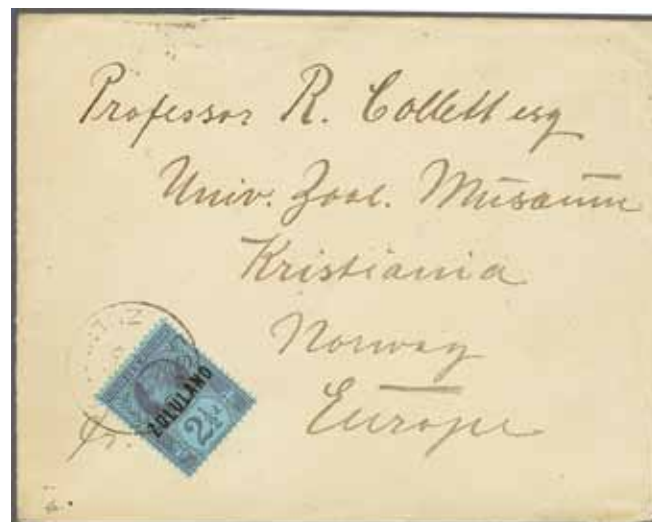 Professor R. Collett esq
Univ. Zool. Museum
Kristiania
Norway
Europe
ZULULAND
2½d